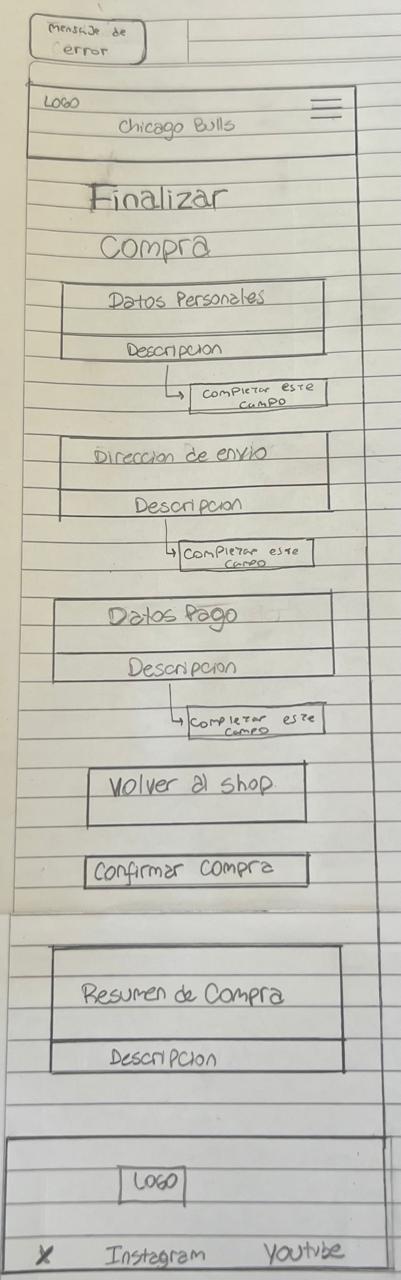 Mensaje de
error
LOGO
Chicago Bulls
Finalizar
Compra
Datos Personales
Descripcion
Completar este
campo
Direccion de envio
Descripcion
Completar este
campo
Datos Pago
Descripcion
Completar este
campo
Volver al shop
Confirmar Compra
Resumen de Compra
Descripcion
LOGO
X Instagram Youtube